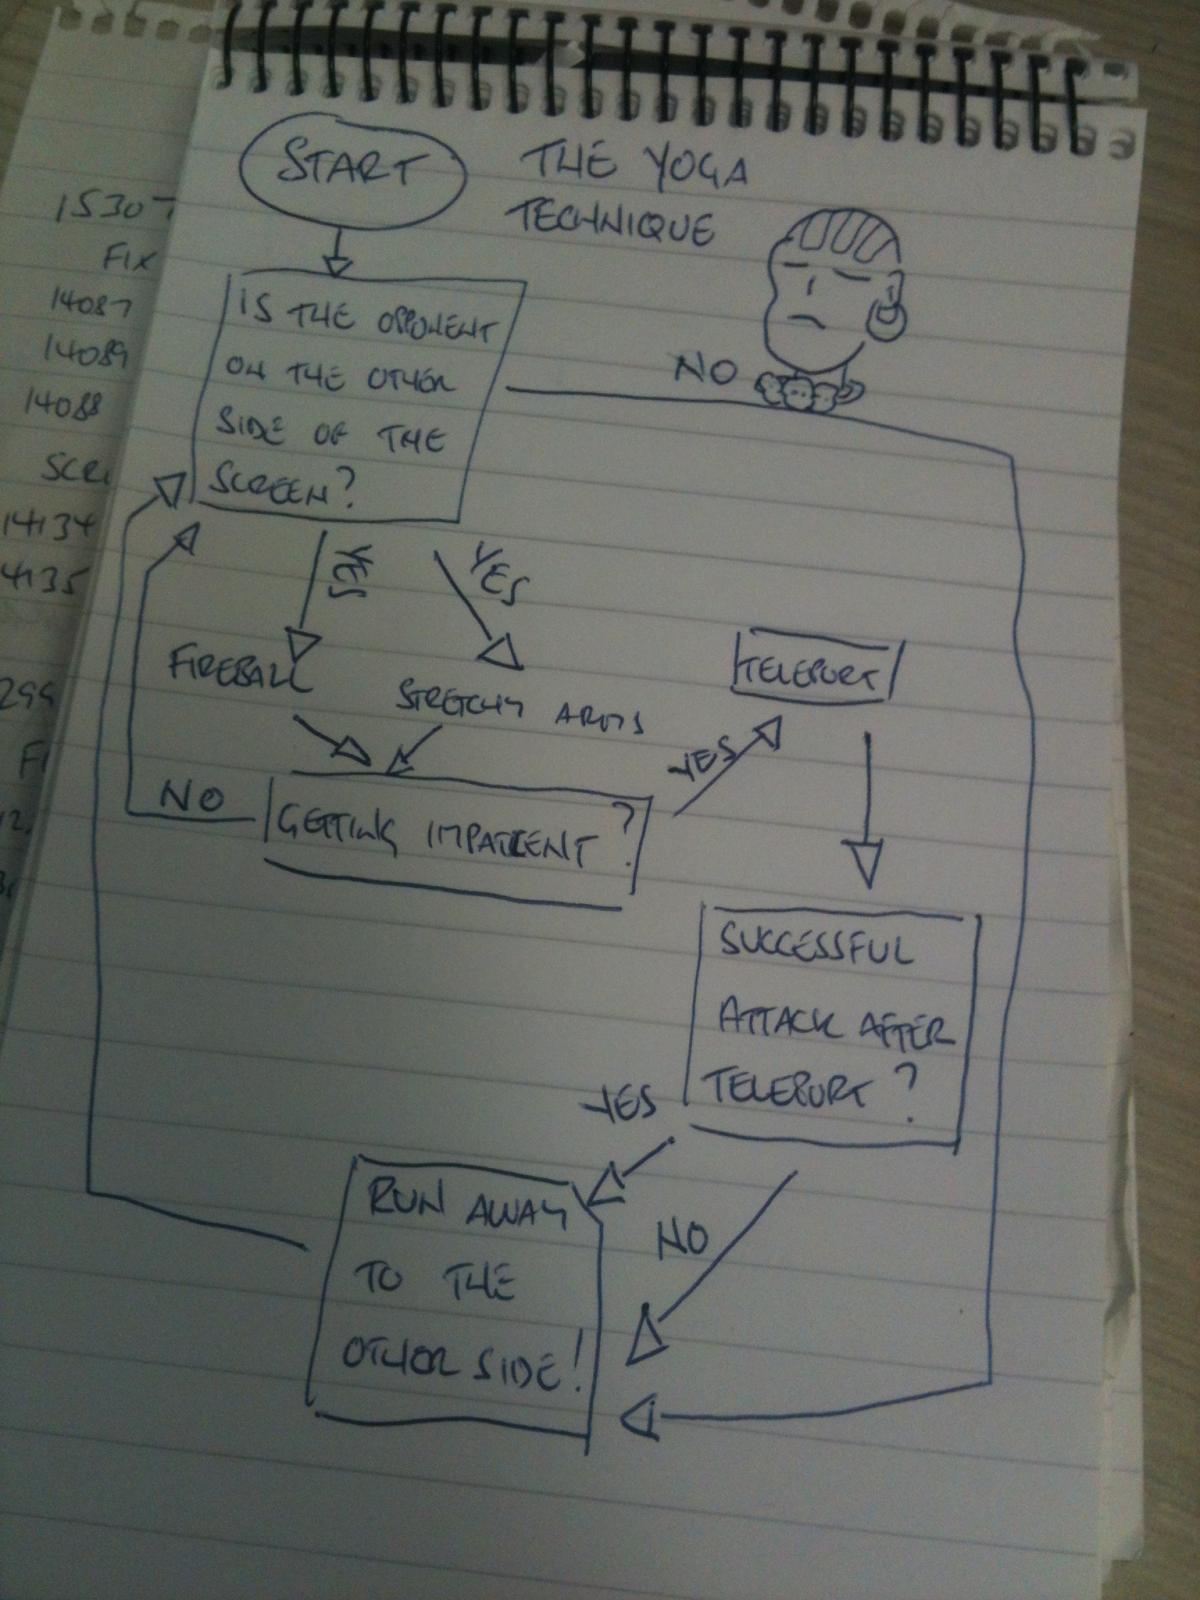 START
THE YOGA
TECHNIQUE
IS THE OPPONENT
ON THE OTHER
SIDE OF THE
SCREEN?
NO
YES
YES
FIREBALL
STRETCHY ARMS
TELEPORT
YES
NO
GETTING IMPATIENT?
SUCCESSFUL
ATTACK AFTER
TELEPORT?
YES
NO
RUN AWAY
TO THE
OTHER SIDE!
15307
FIX
14087
14089
14088
SCRI
14134
4135
299